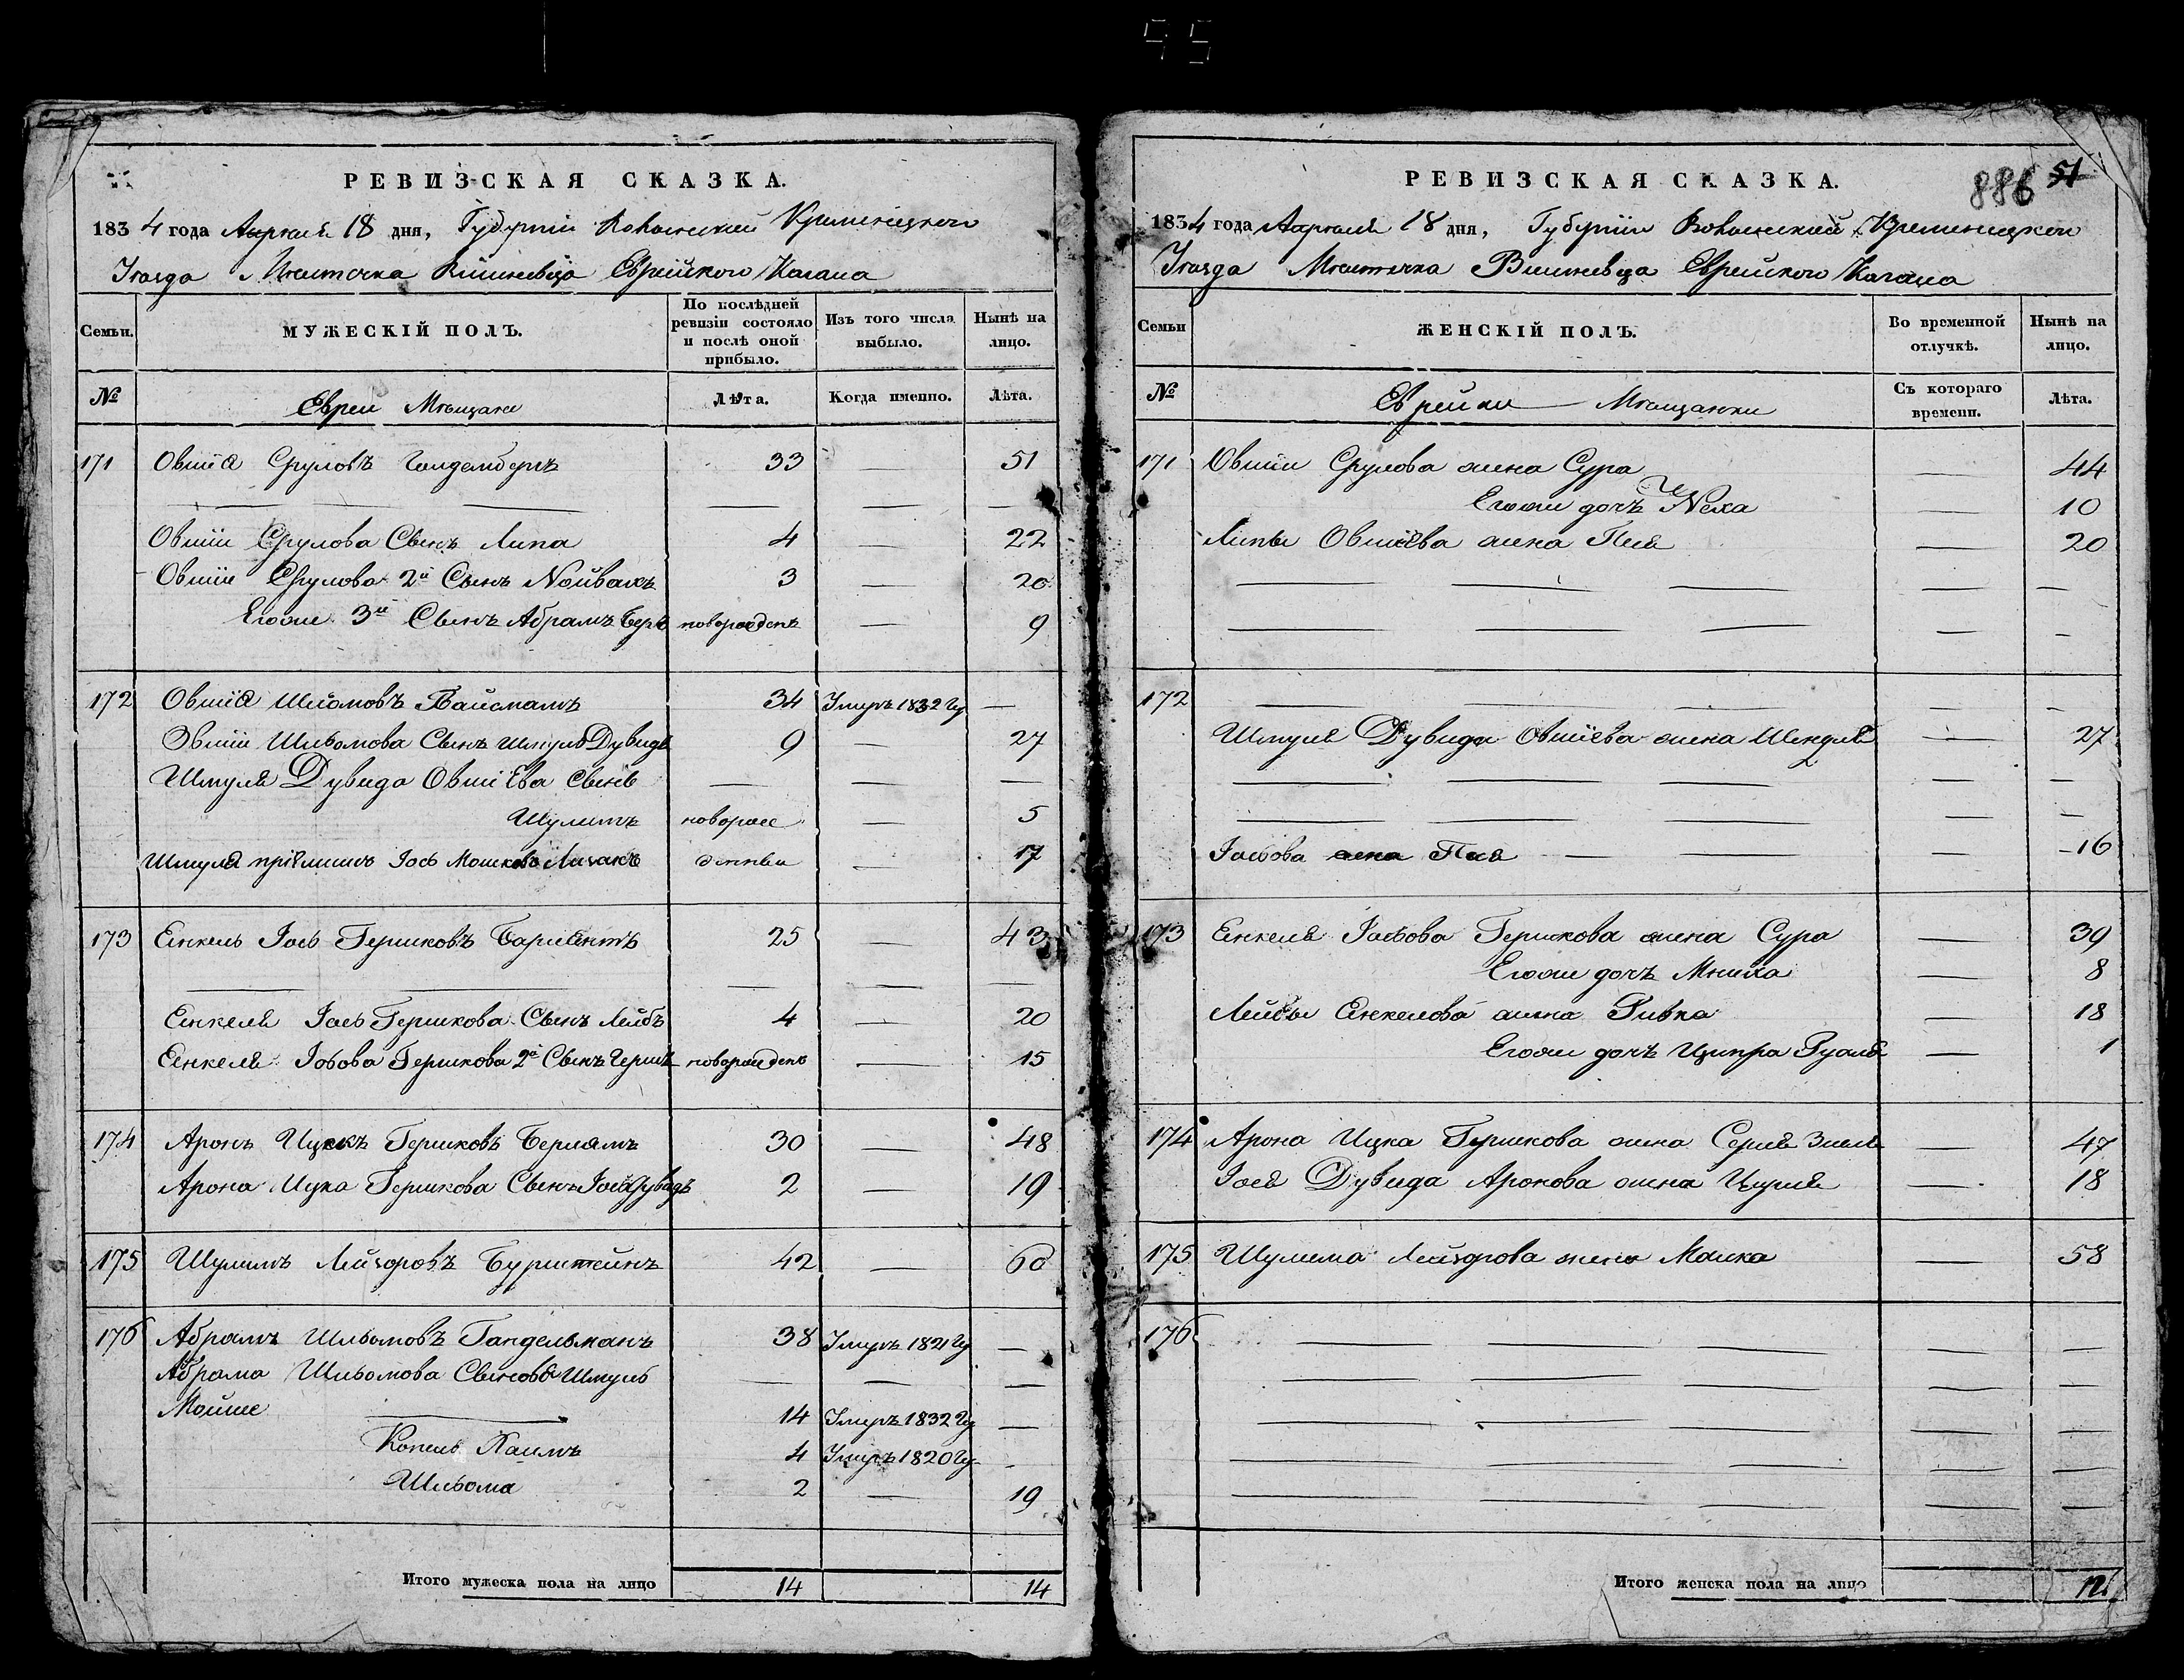 РЕВИЗСКАЯ СКАЗКА.
1834 года Апреля 18 дня, Губерніи Волынской Кременецкого
Уезда Местечка Вишневца Еврейского Кагала
Семьи. МУЖЕСКІЙ ПОЛЪ. По послѣдней ревизіи состояло и послѣ оной прибыло. Изъ того числа выбыло. Нынѣ на лицо.
№ Евреи Мѣщане Лѣта. Когда именно. Лѣта.
171 Овшія Сруловъ Голдемберъ 33 — 51
— — — — — —
Овшіи Срулова Сынъ Липа 4 — 22
Овшіи Срулова 2й Сынъ 3 — 20
Егоже 3й Сынъ Абрамъ Беръ новорожденъ — 9
172 Овшія Шліомовъ Вайсманъ 34 Умеръ 1832 —
Овшіи Шльомова Сынъ Шмуль Дувидъ 9 — 27
Шмуля Дувида Овшіева Сынъ — — —
Шулимъ новорож — 5
Шмуля Іось Мошковъ денны — 17
173 Енкель Іось Гершковъ 25 — 43
— — — — —
Енкеля Іось Гершкова Сынъ Лейбъ 4 — 20
Енкеля Іосьова Гершкова 2й Сынъ Гершъ новорожденъ — 15
174 Аронъ Ицекъ Гершковъ Берлянъ 30 — 48
Арона Ицка Гершкова Сынъ Іося Дувидъ 2 — 19
175 Шулимъ Лейзоровъ Бурштейнъ 42 — 60
176 Абрамъ Шльомовъ Гандельманъ 38 Умеръ 1821 —
Абрама Шльомова Сыновья Шмуль — — —
Мойше — 14 Умеръ 1832 —
Копель Хаимъ 4 Умеръ 1820 -
Шльома 2 — 19
Итого мужеска пола на лицо 14 14
886 51
РЕВИЗСКАЯ СКАЗКА.
1834 года Апреля 18 дня, Губерніи Волынской Кременецкого
Уезда Местечка Вишневца Еврейского Кагала
Семьи ЖЕНСКІЙ ПОЛЪ. Во временной отлучкѣ. Нынѣ на лицо.
№ Еврейки — Мѣщанки Съ котораго времени. Лѣта.
171 Овшіи Срулова жена Сура — 44
Егоже дочъ Неха — 10
Липы Овшіева жена Песя — 20
— — — — —
— — — — -
172 — — — — -
Шмуля Дувида Овшіева жена Шендля — 27
— — — — —
— — — — —
Іосьова жена Песя — — 16
173 Енкеля Іосьова Гершкова жена Сура — 39
Егоже дочъ Мниха — 8
Лейбы Енкелова жена Ривка — 18
Егоже дочъ Ципра Рузля — 1
174 Арона Ицка Гершкова жена — 47
Іося Дувида Аронова жена Цурля — 18
175 Шулима Лейзорова жена Малка — 58
176 — — — — —
— — — — —
— — — — —
— — — — —
— — — — —
Итого женска пола на лицо 12